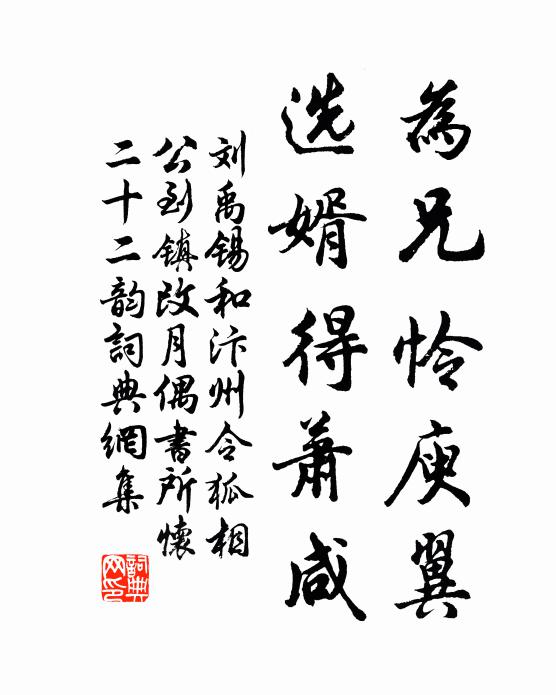 為兄怜庾翼
选婿得萧咸
刘禹锡和汴州令狐相
公到镇改月偶书所懷
二十二韵詞典網集
詞典
网印